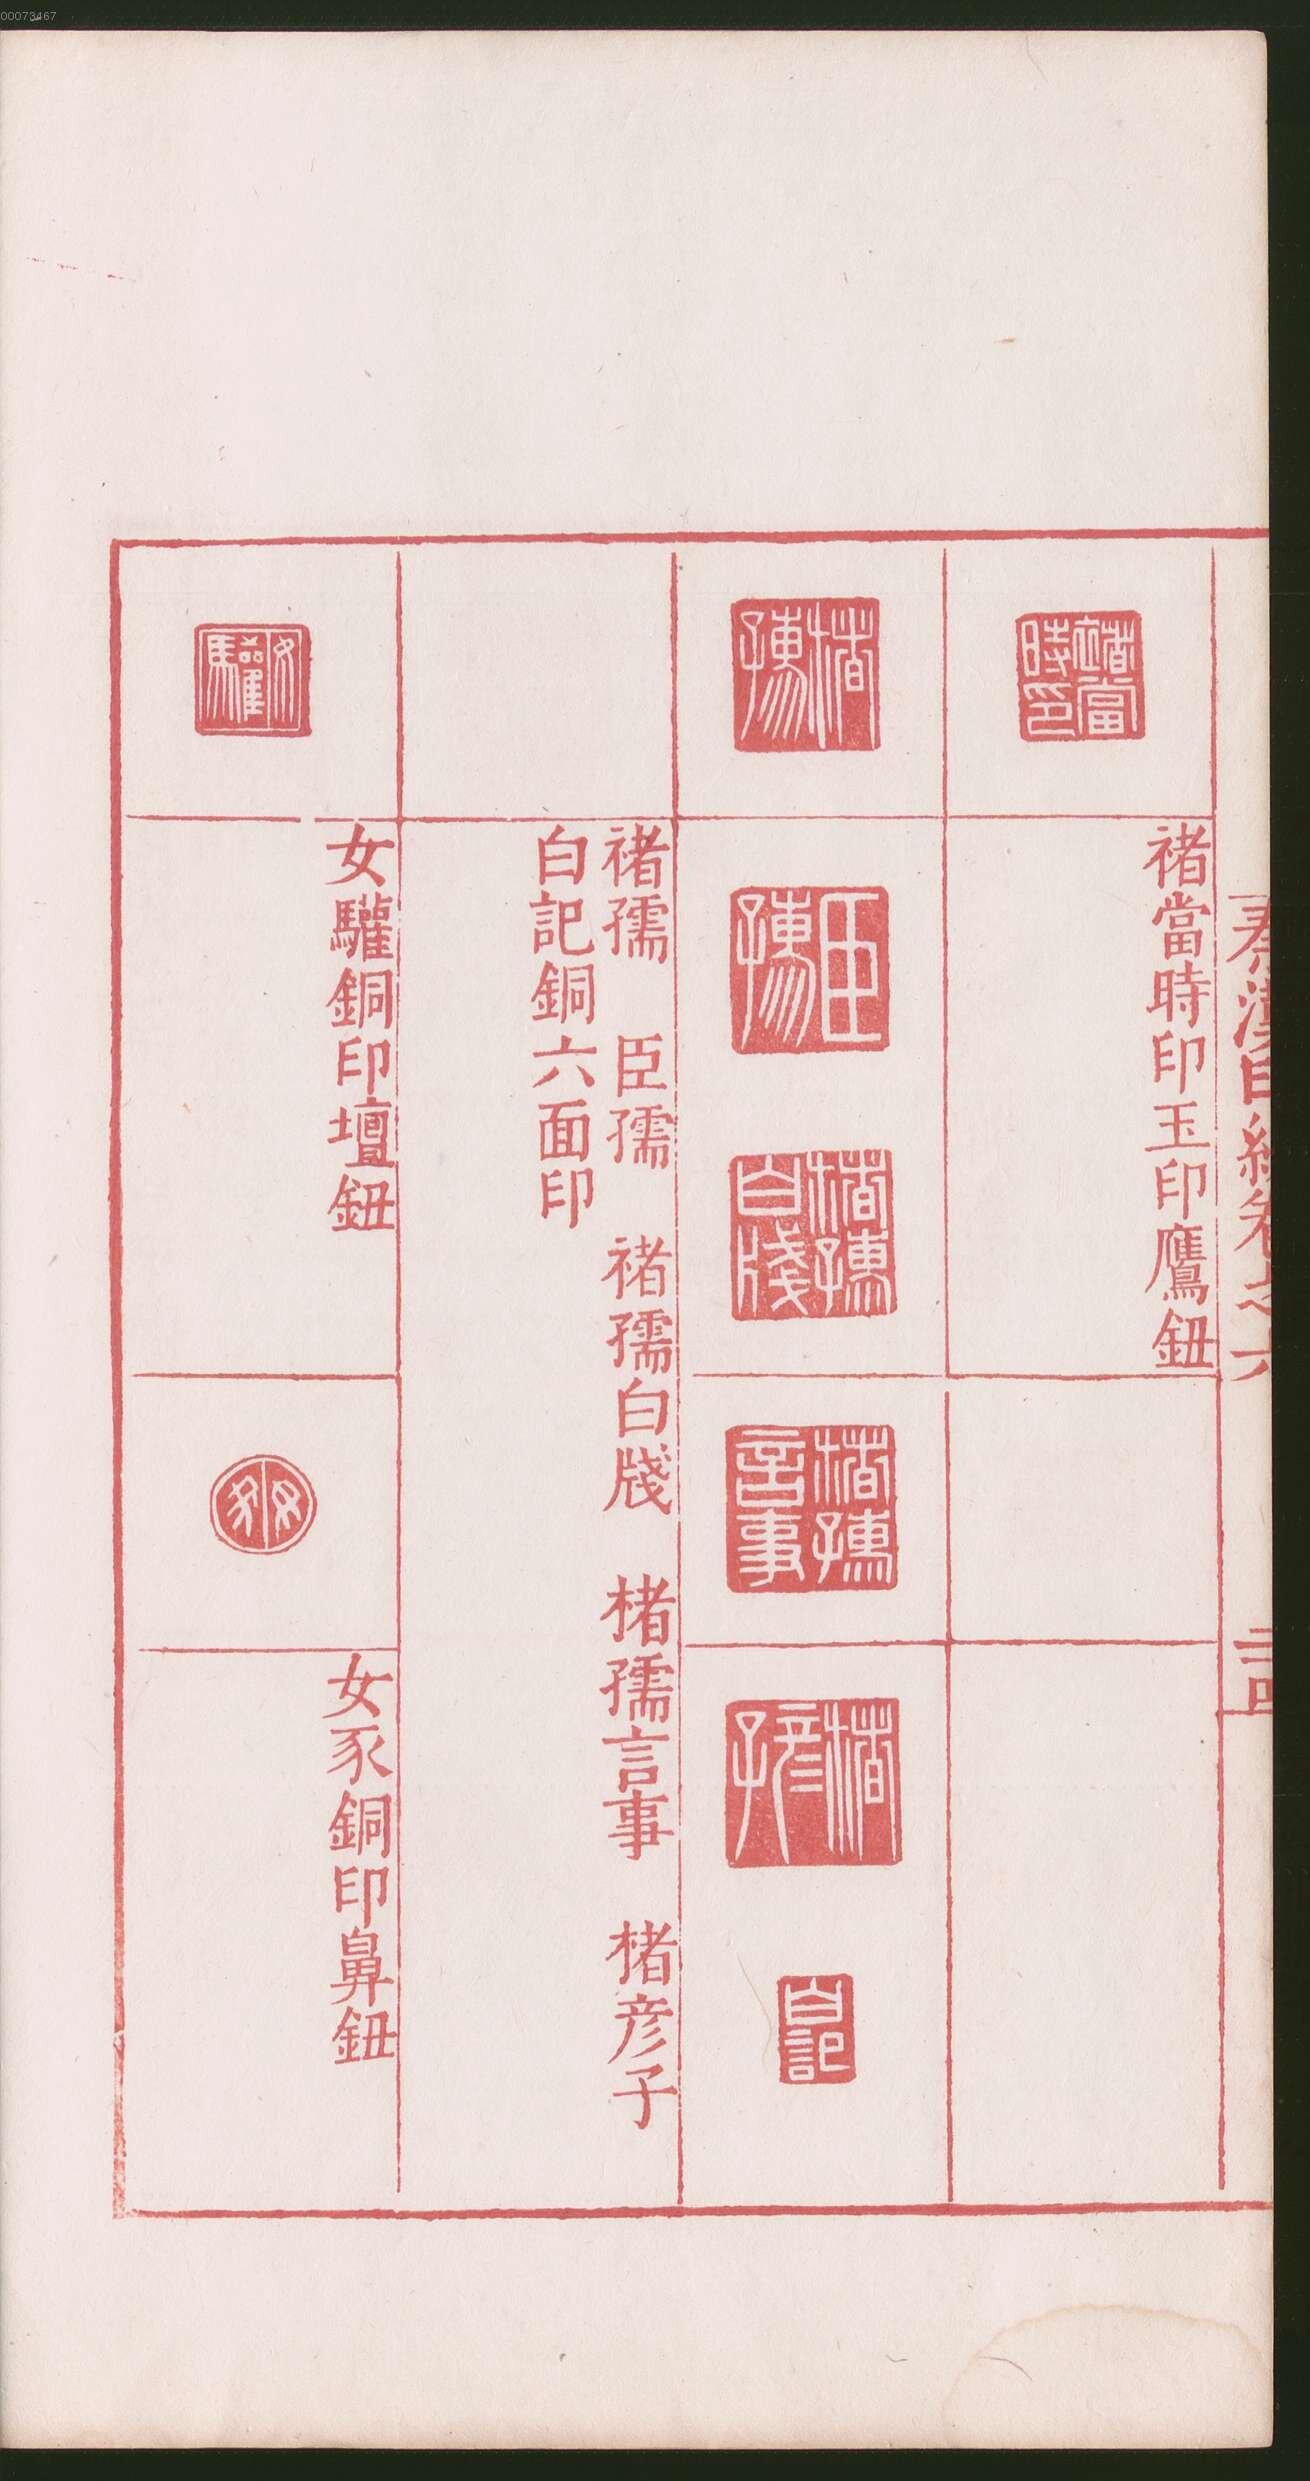 00073467
秦漢印統卷之六
二四
褚當時印
褚當時印玉印鷹鈕
褚孺
臣孺
褚孺白牋
楮孺言事
楮彦子
白記
褚孺　臣孺　褚孺白牋　楮孺言事　楮彦子
白記銅六面印
女驩
女驩銅印壇鈕
女豕銅印鼻鈕